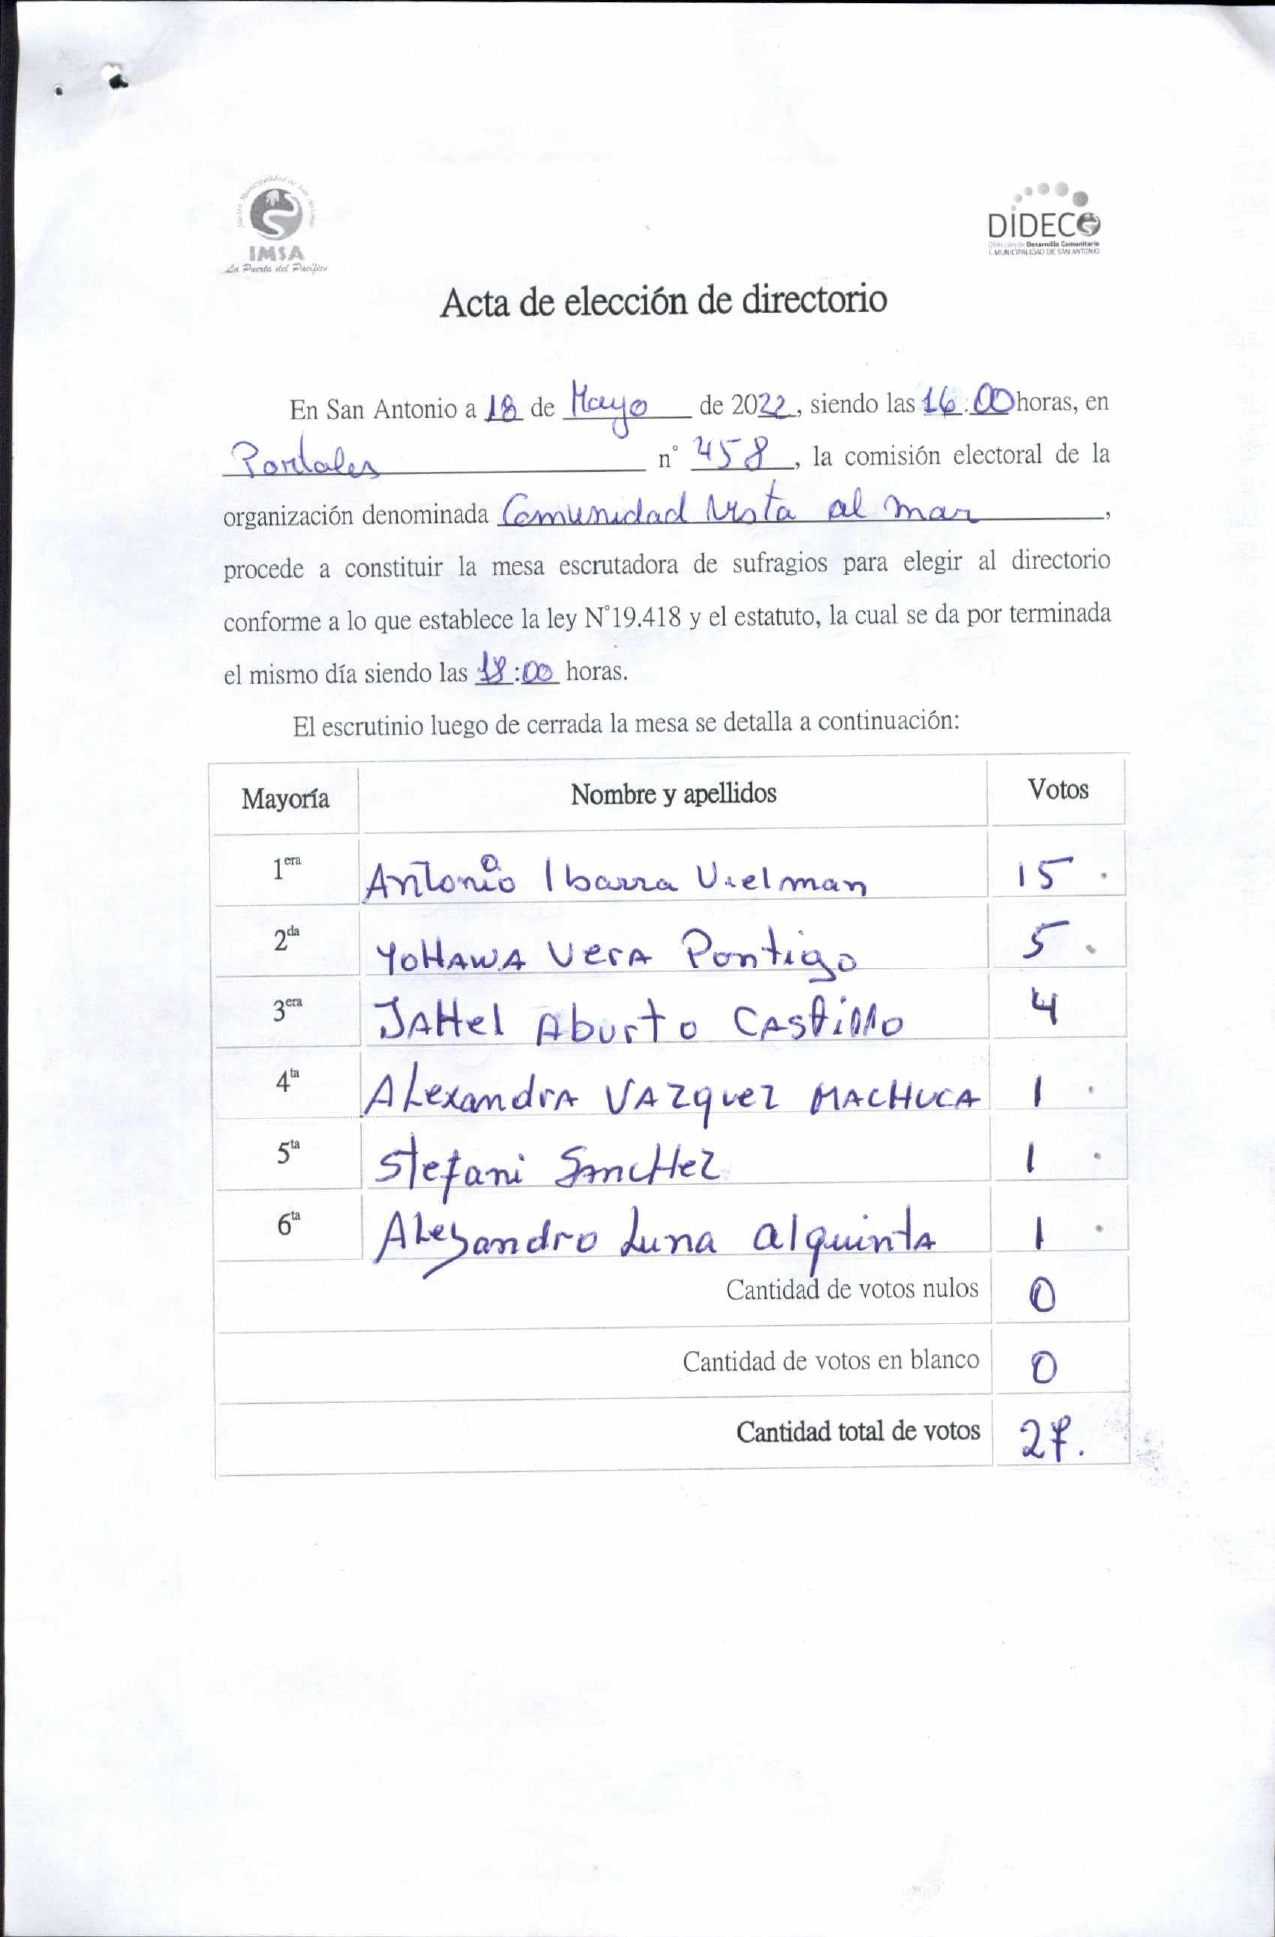 IMSA
La Puerta del Pacífico
DIDECO
Dirección de Desarrollo Comunitario
I. MUNICIPALIDAD DE SAN ANTONIO
Acta de elección de directorio
En San Antonio a 18 de Mayo de 2022, siendo las 16:00 horas, en
Portales n° 458, la comisión electoral de la
organización denominada Comunidad Vista al mar,
procede a constituir la mesa escrutadora de sufragios para elegir al directorio
conforme a lo que establece la ley N°19.418 y el estatuto, la cual se da por terminada
el mismo día siendo las 18:00 horas.
El escrutinio luego de cerrada la mesa se detalla a continuación:
Mayoría Nombre y apellidos Votos
1era Antonio Ibarra Vielman 15.
2da YOHAWA VerA Pontigo 5.
3era JAHel Aburto CAStillo 4
4ta ALexandrA VAZquez MACHUCA 1.
5ta Stefani SanCHeZ 1.
6ta ALeJandro Luna alquintA 1.
Cantidad de votos nulos 0
Cantidad de votos en blanco 0
Cantidad total de votos 27.